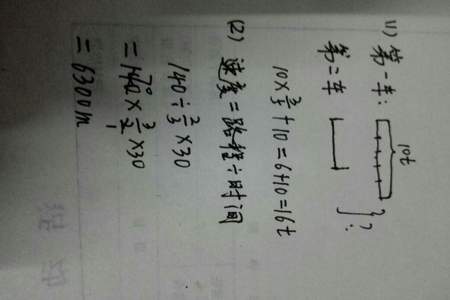 (1) 第一车: 10t
第二车 }?
10×3/5+10=6+10=16t
(2) 速度=路程÷时间
140÷2/3×30
=140×3/2×30
=6300m